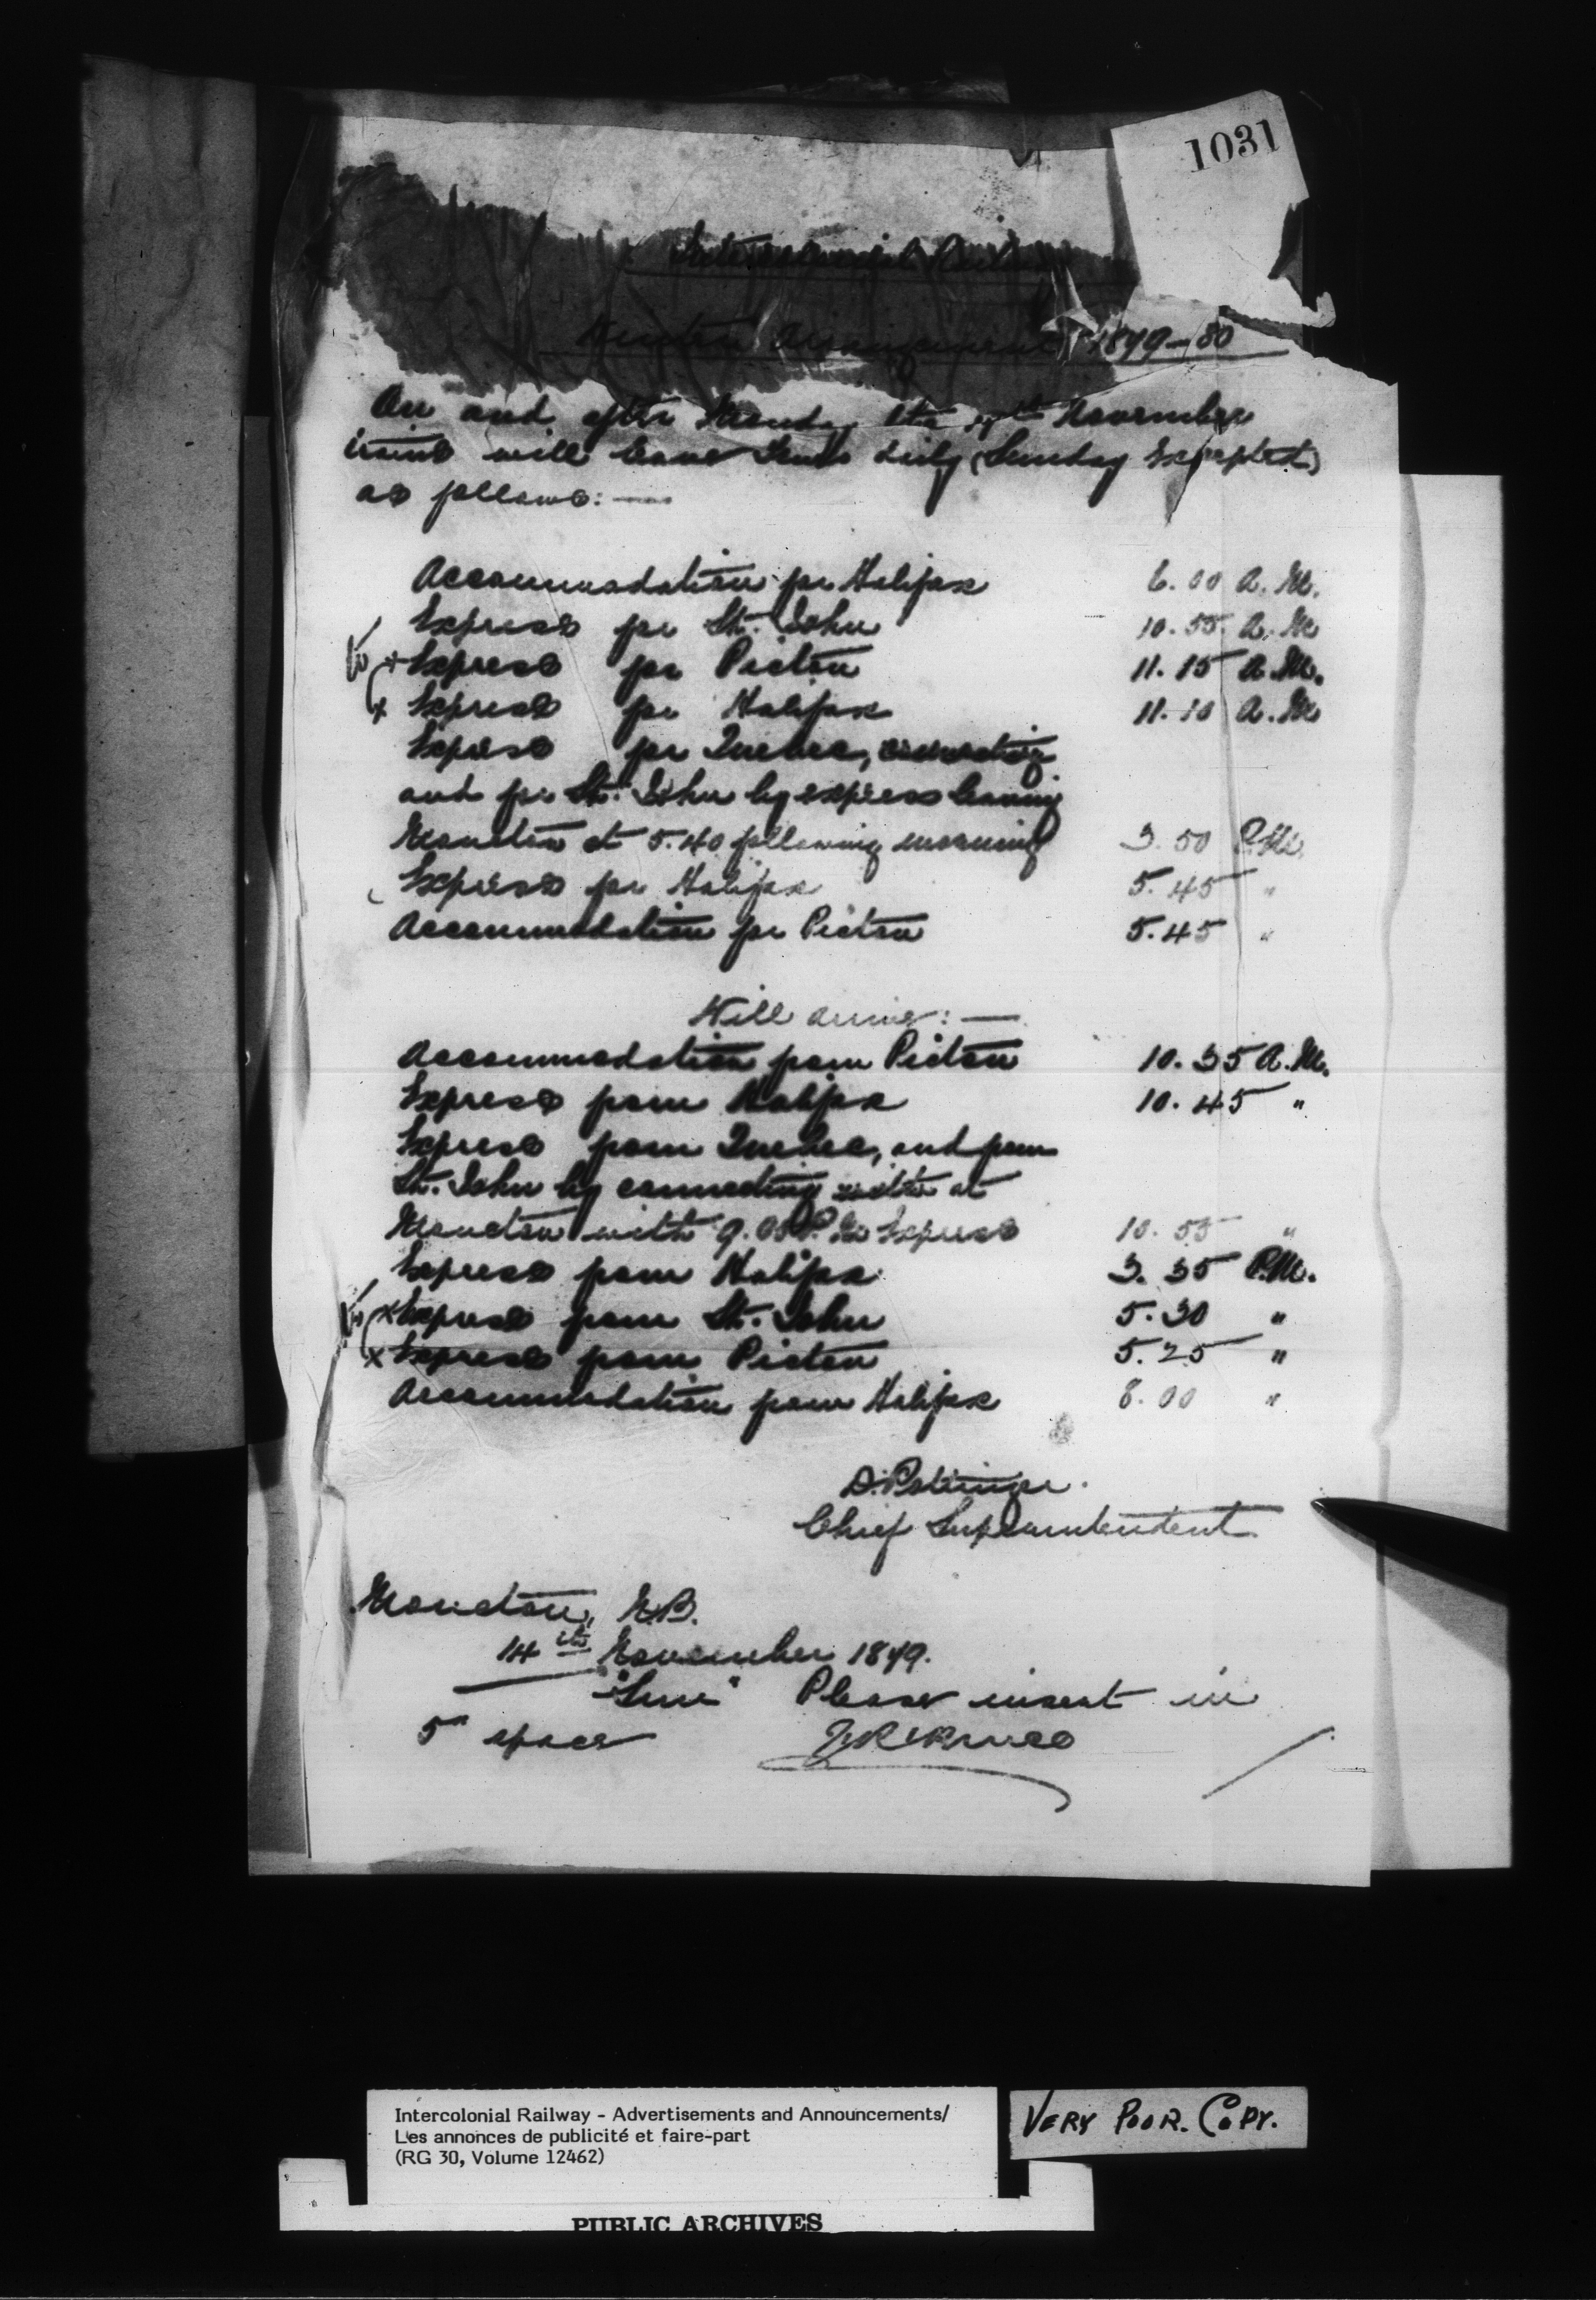 1031
Intercolonial Railway
Winter Arrangement 1879-80
On and after Monday the 17th November
trains will leave Truro daily (Sunday Excepted)
as follows:—
Accommodation for Halifax 6.00 A.M.
Express for St. John 10.55 A.M
Express for Pictou 11.15 A.M.
Express for Halifax 11.10 A.M
Express for Quebec,
and for St. John by express leaving
Moncton at 5.40 following morning 3.50 P.M.
Express for Halifax 5.45 "
Accommodation for Pictou 5.45 "
Will arrive:—
Accommodation from Pictou 10.35 A.M.
Express from Halifax 10.45 "
Express from Quebec, and from
St. John by connecting at
Moncton with 9.05 P.M Express 10.55 "
Express from Halifax 3.35 P.M.
Express from St. John 5.30 "
Express from Pictou 5.25 "
Accommodation from Halifax 8.00 "
D. Pottinger.
Chief Superintendent
Moncton, N.B.
14th November 1879.
"Sun" Please insert in
5" space
Intercolonial Railway - Advertisements and Announcements/
Les annonces de publicité et faire-part
(RG 30, Volume 12462)
VERY POOR. COPY.
PUBLIC ARCHIVES